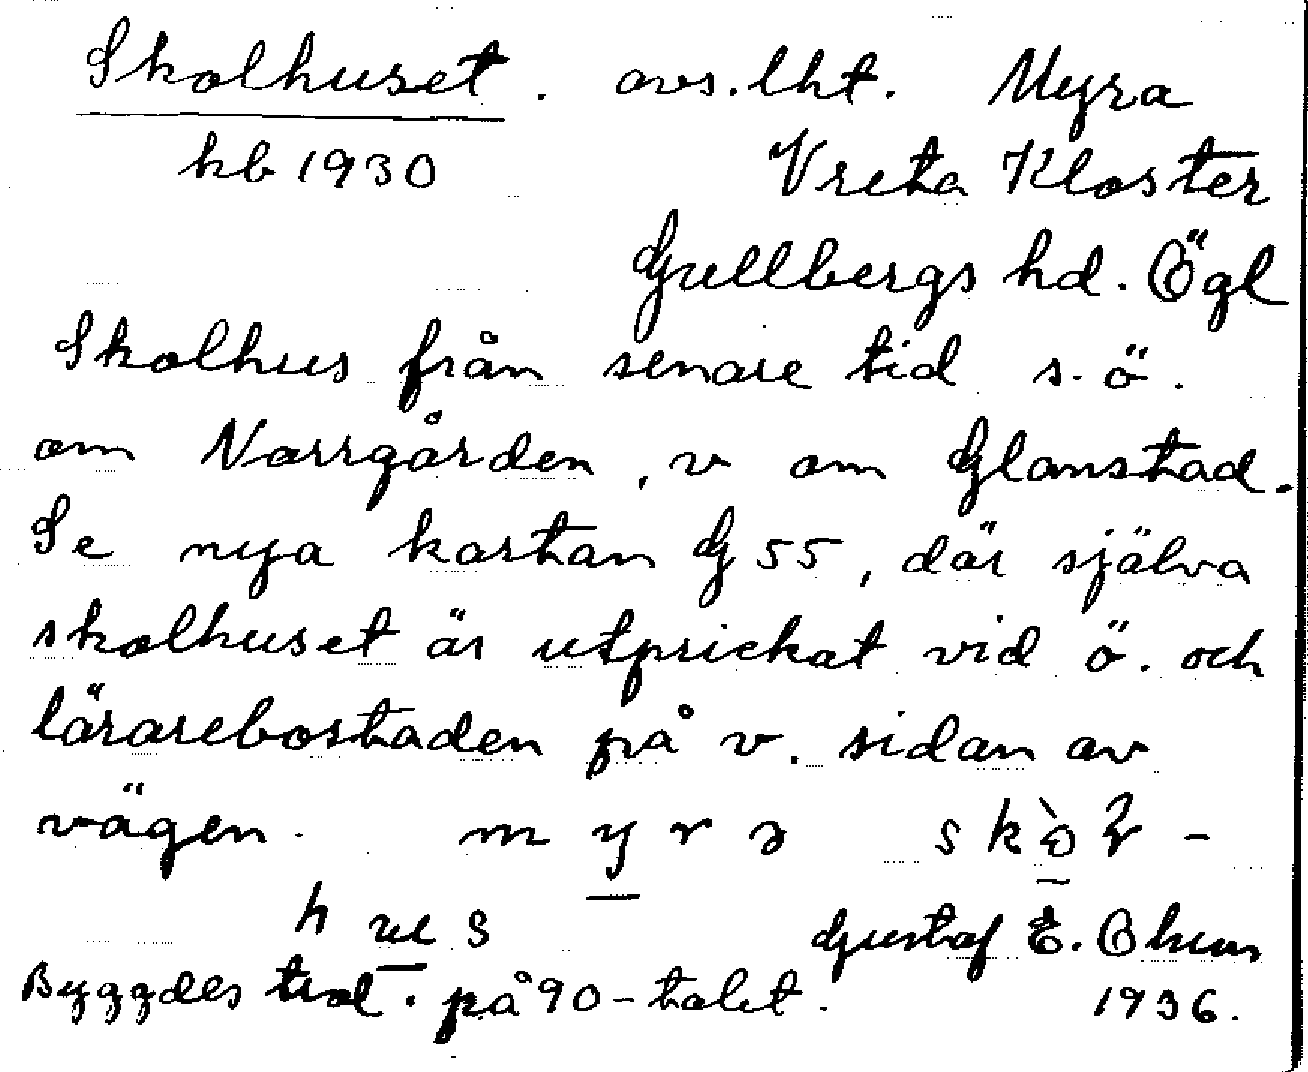 Skolhuset. avs. lht. Myra
kb 1930 Vreta Kloster
Gullbergs hd. Ögl
Skolhus från senare tid s.ö.
om Norrgården, v om Glanstad.
Se nya kartan G 55, där själva
skolhuset är utprickat vid ö. och
lärarebostaden på v. sidan av
vägen. m y r a s k ò l -
h u s Gustaf E. Ohun
Byggdes trol. på 90-talet. 1936.